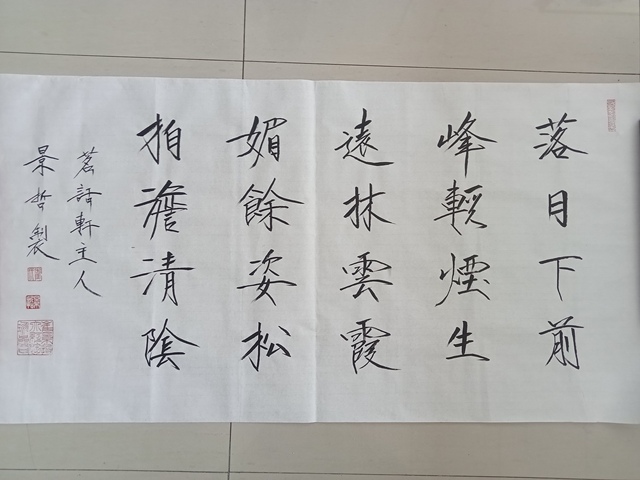 落日下前
峰輕煙生
遠林雲霞
媚餘姿松
柏澹清陰
茗譯軒主人
景哲製